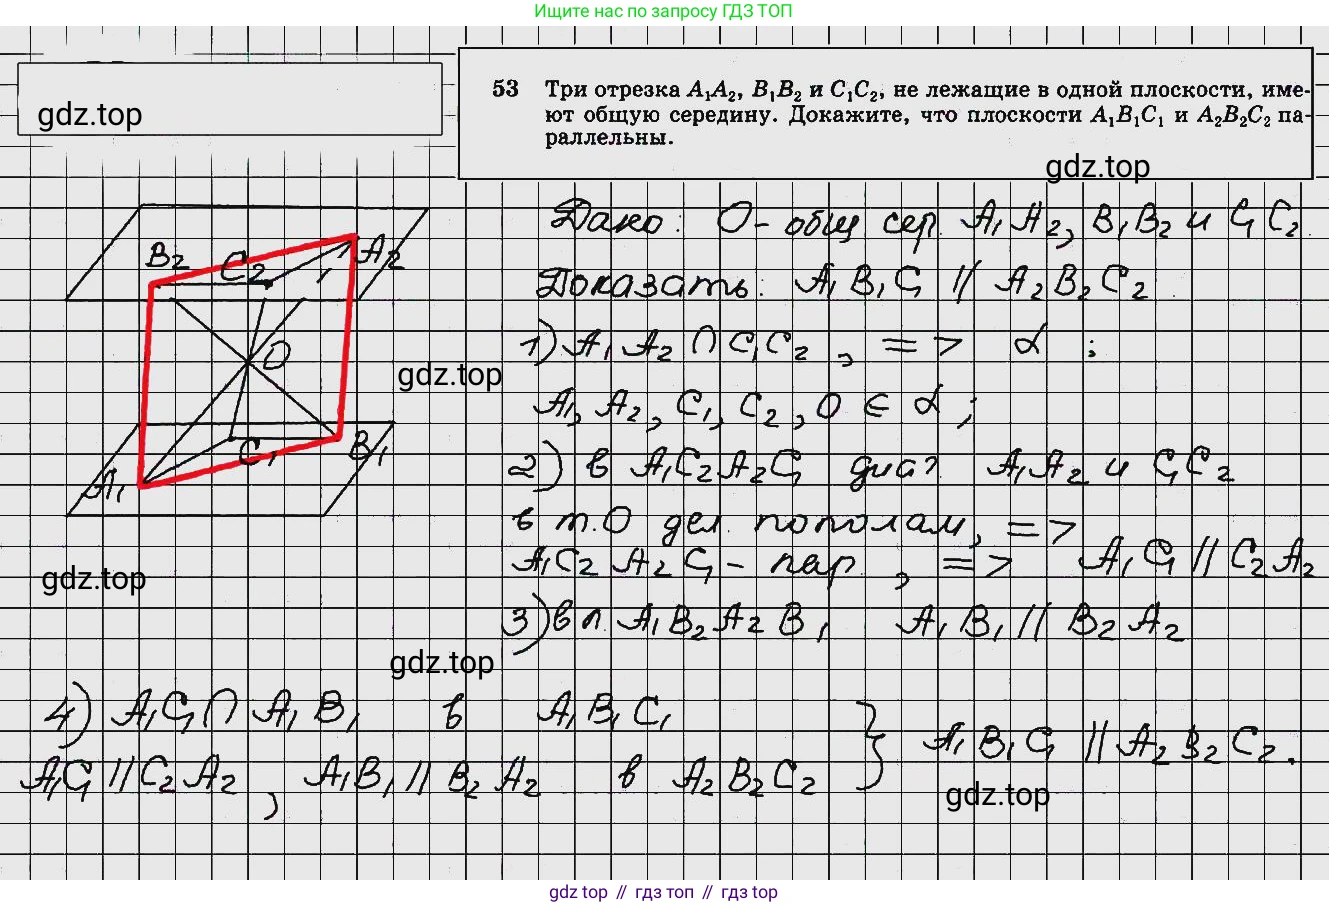 Ищите нас по запросу ГДЗ ТОП
gdz.top
53 Три отрезка A₁A₂, B₁B₂ и C₁C₂, не лежащие в одной плоскости, име-
ют общую середину. Докажите, что плоскости A₁B₁C₁ и A₂B₂C₂ па-
раллельны.
gdz.top
Дано: O - общ сер. A₁A₂, B₁B₂ и C₁C₂
Доказать: A₁B₁C₁ // A₂B₂C₂
1) A₁A₂ ∩ C₁C₂, => α :
A₁, A₂, C₁, C₂, O ∈ α;
2) в A₁C₂A₂C₁ диаг. A₁A₂ и C₁C₂
в т.O дел. пополам, =>
A₁C₂A₂C₁ - пар., => A₁C₁ // C₂A₂
3) в п. A₁B₂A₂B₁ A₁B₁ // B₂A₂
B₂
C₂
A₂
O
gdz.top
C₁
B₁
A₁
gdz.top
gdz.top
4) A₁C₁ ∩ A₁B₁ в A₁B₁C₁
A₁C₁ // C₂A₂, A₁B₁ // B₂A₂ в A₂B₂C₂ } A₁B₁C₁ // A₂B₂C₂.
gdz.top
gdz top // гдз топ // gdz top